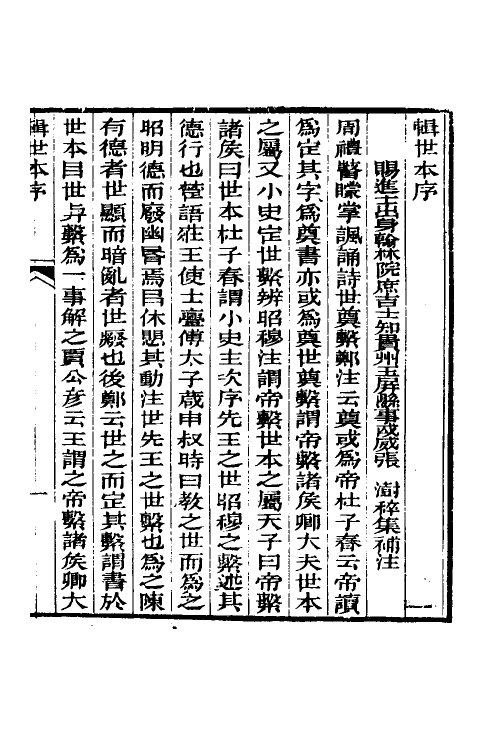 輯世本序
賜進士出身翰林院庶吉士知貴州玉屏縣事武威張 澍稡集補注
周禮瞽矇掌諷誦詩世奠繫鄭注云奠或爲帝杜子春云帝讀
爲定其字爲奠書亦或爲奠世奠繫謂帝繫諸侯卿大夫世本
之屬又小史定世繫辨昭穆注謂帝繫世本之屬天子曰帝繫
諸侯曰世本杜子春謂小史主次序先王之世昭穆之繫述其
德行也楚語莊王使士亹傅大子葴申叔時曰敎之世而爲之
昭明德而廢幽昬焉㠯休懼其動注世先王之世繫也爲之陳
有德者世顯而暗亂者世廢也後鄭云世之而定其繫謂書於
世本㠯世與繫爲一事解之賈公彦云王謂之帝繫諸侯卿大
輯世本序
一